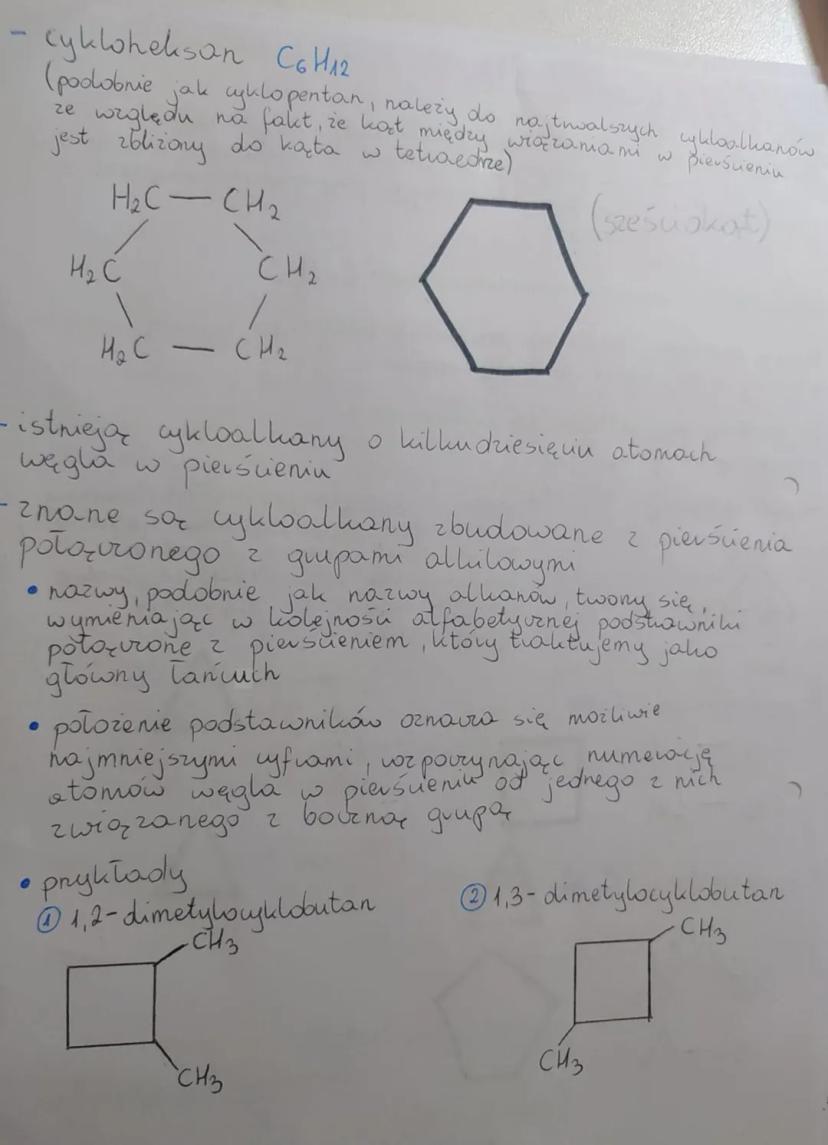 - cykloheksan C6H12
(podobnie jak cyklopentan, należy do najtrwalszych cykloalkanów
ze względu na fakt, że kąt między wiązaniami w pierścieniu
jest zbliżony do kąta w tetraedrze)
H2C — CH2
(sześciokąt)
H2C CH2
H2C — CH2
- istnieją cykloalkany o kilkudziesięciu atomach
węgla w pierścieniu
- znane są cykloalkany zbudowane z pierścienia
połączonego z grupami alkilowymi
• nazwy, podobnie jak nazwy alkanów, tworzy się,
wymieniając w kolejności alfabetycznej podstawniki
połączone z pierścieniem, który traktujemy jako
główny łańcuch
• położenie podstawników oznacza się możliwie
najmniejszymi cyframi, rozpoczynając numerację
atomów węgla w pierścieniu od jednego z nich
związanego z boczną grupą
• przykłady
① 1,2-dimetylocyklobutan
② 1,3-dimetylocyklobutan
CH3
CH3
CH3
CH3